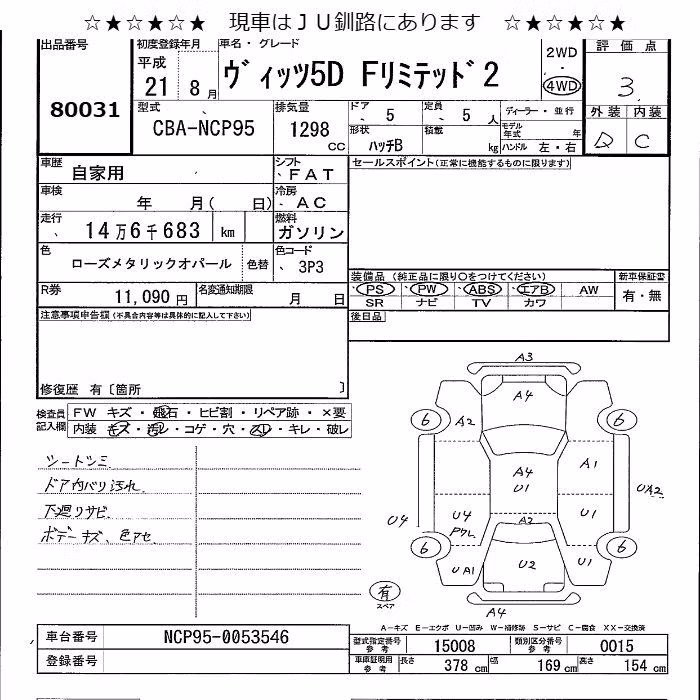 ☆★☆★☆★ 現車はＪＵ釧路にあります ☆★☆★☆★
出品番号
80031
初度登録年月
平成
21 8月
車名・グレード
ヴィッツ5D Fリミテッド2
2WD
・
4WD
評価点
3
型式
CBA-NCP95
排気量
1298
CC
ドア
5
定員
5 人
形状
ハッチB
積載
kg
ディーラー・並行
モデル年式 年
ハンドル 左・右
外装 内装
D C
車歴
自家用
シフト
FAT
セールスポイント(正常に機能するものに限ります)
車検
年 月( 日)
冷房
AC
走行
14万6千683 km
燃料
ガソリン
色
ローズメタリックオパール 色替
色コード
3P3
装備品(純正品に限り○をつけてください)
新車保証書
PS PW ABS エアB AW
SR ナビ TV カワ
有・無
R券
11,090 円
名変通知期限
月 日
後日品
注意事項申告欄(不具合内容等は具体的に記入して下さい)
修復歴 有〔箇所 〕
検査員記入欄
FW キズ・飛石・ヒビ割・リペア跡・×要
内装 キズ・汚レ・コゲ・穴・スレ・キレ・破レ
シートシミ
ドア内バリ汚れ
下廻りサビ
ボデーキズ、色アセ
A3
A4
6 A2 6
A4
U1
A1
UA2
U4
U4
アクレ
A2
U1
6 6
UA1 U2 U1
有
スペア
A4
A－キズ E－エクボ U－凹み W－補修跡 S－サビ C－腐食 XX－交換済
車台番号 NCP95-0053546
登録番号
型式指定番号 参考 15008
類別区分番号 参考 0015
車庫証明用 参考 長さ 378 cm 幅 169 cm 高さ 154 cm